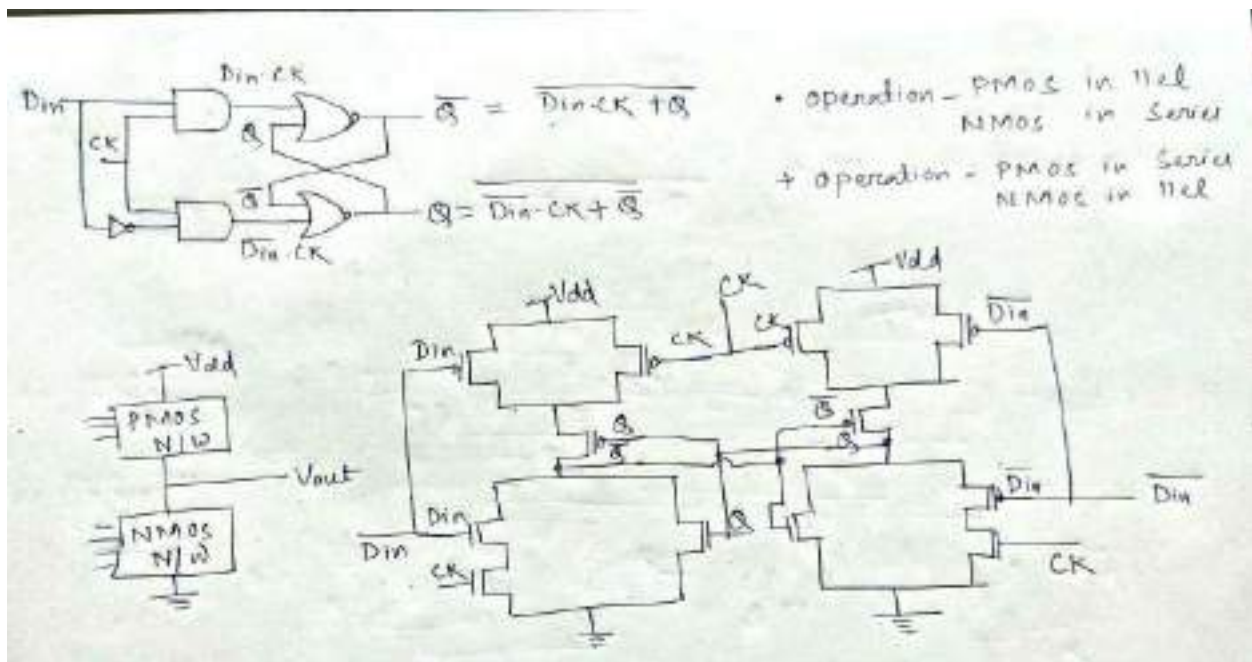 Din
Din·CK
CK
Q
Q̅
D̅i̅n̅·CK
Q̅ = \overline{Din·CK + Q}
Q = \overline{\overline{Din}·CK + Q̅}
• operation - PMOS in llel
NMOS in Series
+ operation - PMOS in Series
NMOS in llel
Vdd
PMOS
N/W
Vout
NMOS
N/W
Vdd
CK
Vdd
Din
CK
CK
D̅i̅n̅
Q
Q̅
Q̅
Q
Din
Din
CK
Q
D̅i̅n̅
D̅i̅n̅
CK